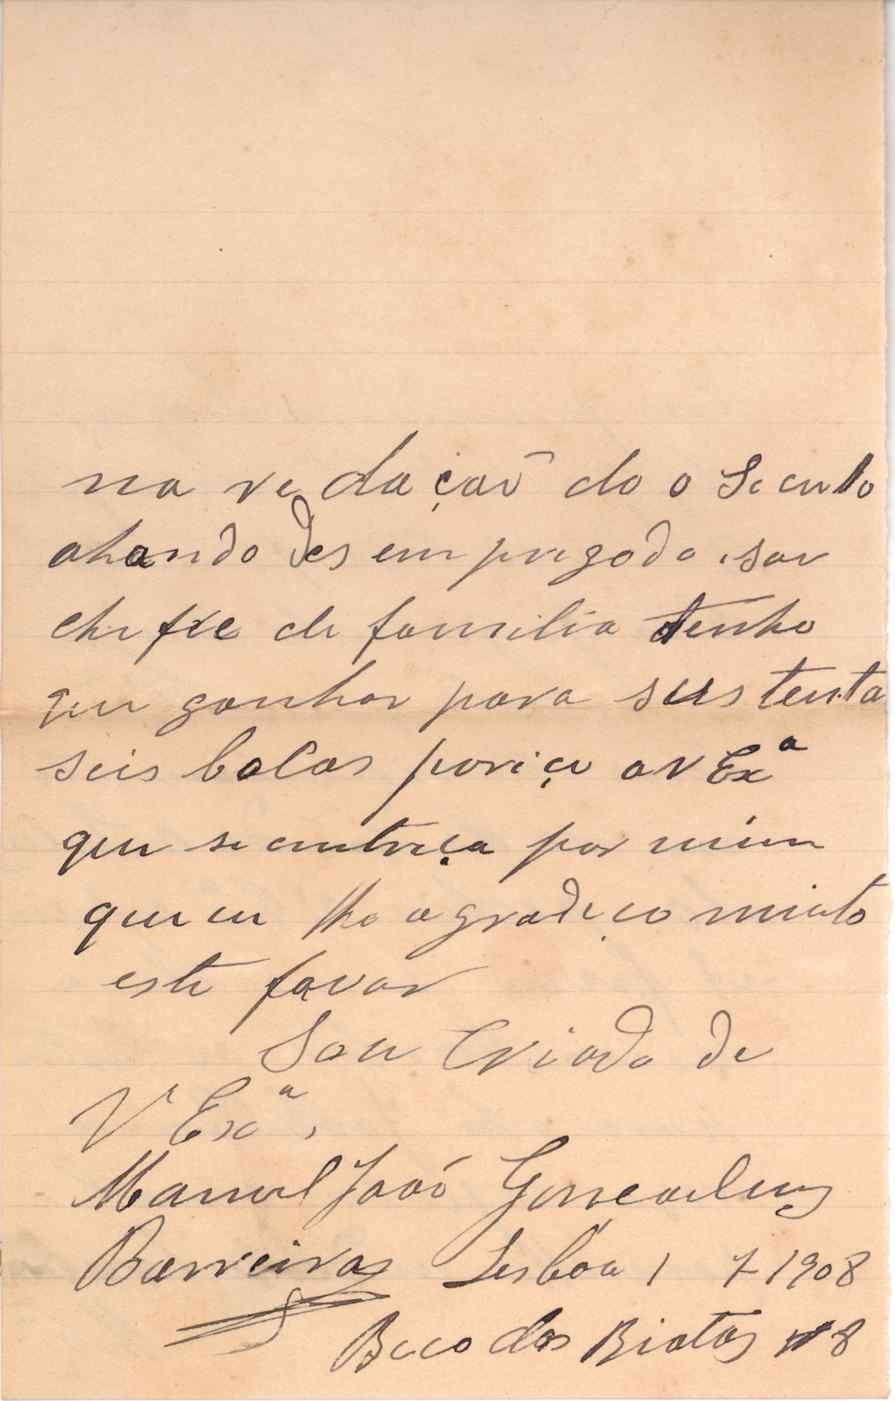 na redação do o Seculo
ahando desempregado sou
cheffe de familia tenho
que ganhar para sustenta
seis bocas poriço a V Exª
que se entreça por mim
que eu lhe agradeço muinto
este favor
Sou Criado de
V Exª,
Manuel João Goncalves
Barreiras Lesbôa 1 7 1908
Beco dos Biatas nº 8